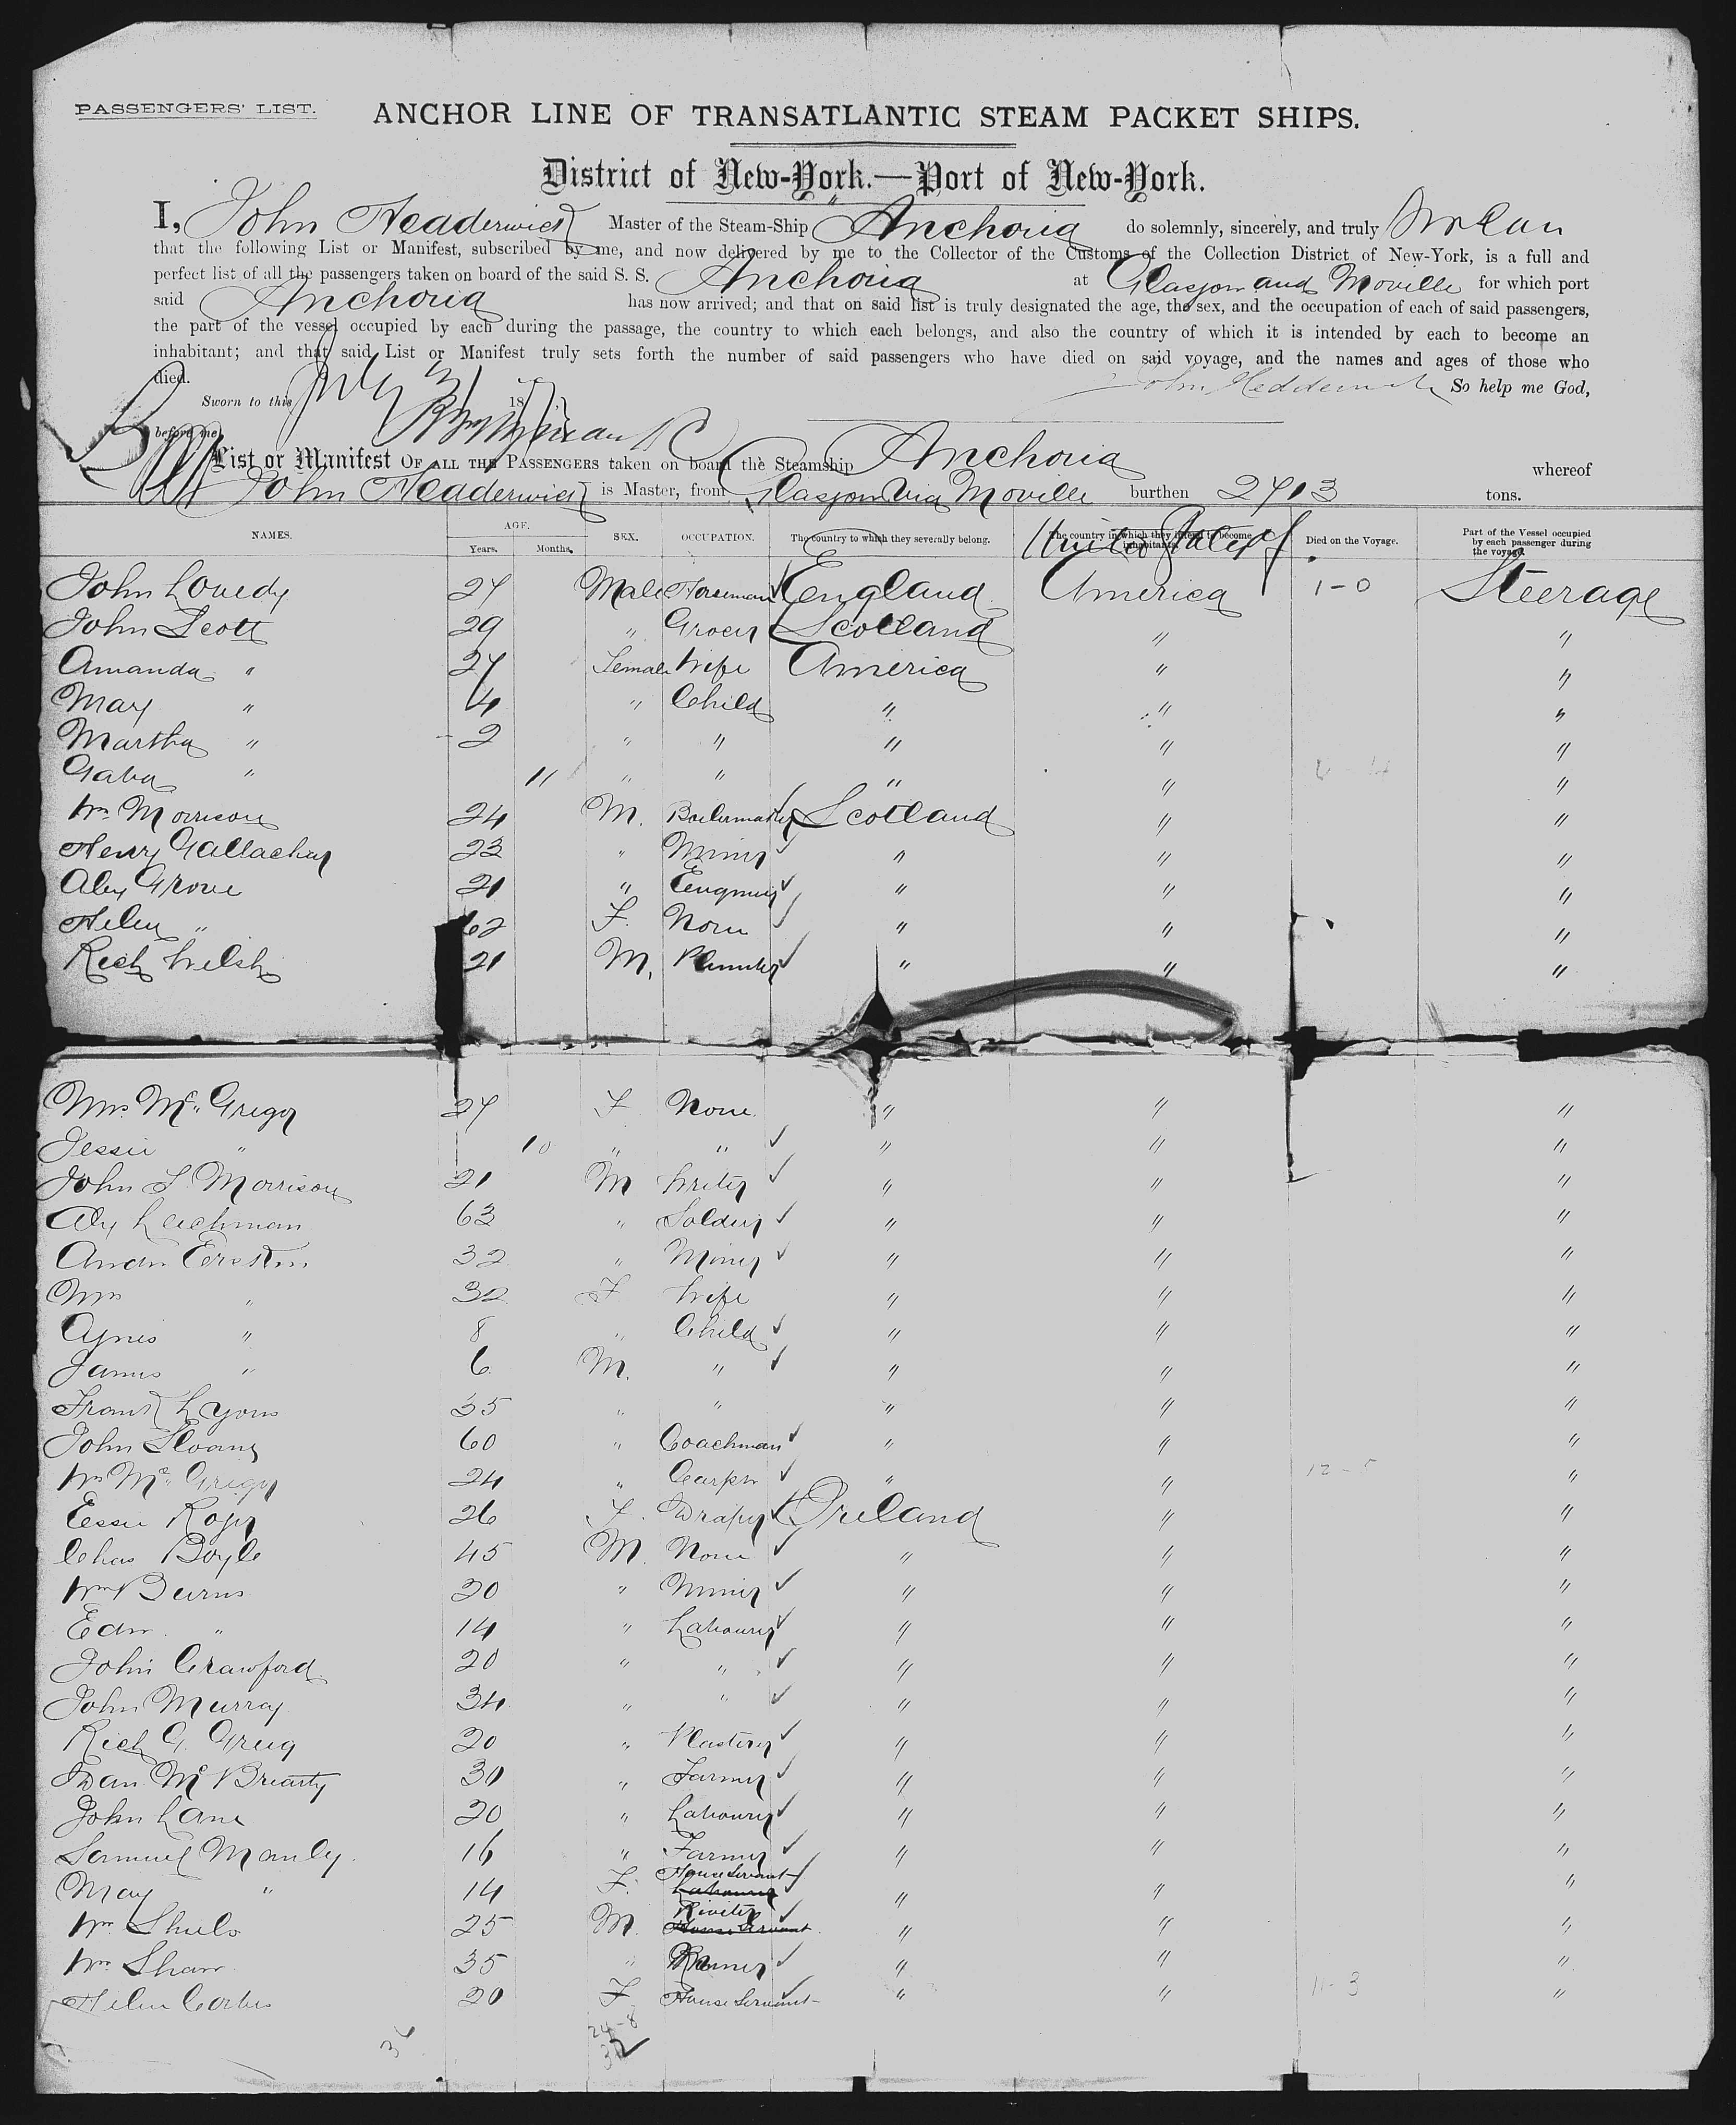 PASSENGERS' LIST. ANCHOR LINE OF TRANSATLANTIC STEAM PACKET SHIPS.
District of New-York.—Port of New-York.
I, John Hedderwick Master of the Steam-Ship "Anchoria do solemnly, sincerely, and truly Swear
that the following List or Manifest, subscribed by me, and now delivered by me to the Collector of the Customs of the Collection District of New-York, is a full and
perfect list of all the passengers taken on board of the said S. S. Anchoria at Glasgow and Moville for which port
said Anchoria has now arrived; and that on said list is truly designated the age, the sex, and the occupation of each of said passengers,
the part of the vessel occupied by each during the passage, the country to which each belongs, and also the country of which it is intended by each to become an
inhabitant; and that said List or Manifest truly sets forth the number of said passengers who have died on said voyage, and the names and ages of those who
died. John Hedderwick So help me God,
Sworn to this July 31 1877
before me
List or Manifest OF ALL THE PASSENGERS taken on board the Steamship Anchoria whereof
John Hedderwick is Master, from Glasgow via Moville burthen 2713 tons.
NAMES. AGE. Years. Months. SEX. OCCUPATION. The country to which they severally belong. The country in which they intend to become inhabitants. Died on the Voyage. Part of the Vessel occupied by each passenger during the voyage.
United States of
John Lovedy 27 Male Horseman England America 1-0 Steerage
John Scott 29 " Grocer Scotland " "
Amanda " 27 Female Wife America " "
May " 4 " Child " " "
Martha " 2 " " " " "
" 11 " " " " "
Wm Morrison 24 M. Boilermaker Scotland " "
Henry Gallacher 23 " Miner " " "
Alex Grove 21 " Engineer " " "
Helen " 62 F. None " " "
Rich Welsh 21 M. Plumber " " "
Mrs McGregor 27 F None " " "
Jessie " 10 " " " " "
John S Morrison 21 M Writer " " "
Alex Leechman 63 " Soldier " " "
Andw 32 " Miner " " "
Mrs " 32 F Wife " " "
Agnes " 8 " Child " " "
James " 6 M. " " " "
Frank Lyons 35 " " " " "
John Sloane 60 " Coachman " " "
Wm McGregor 24 " Carptr " " "
Essie Roger 26 F. Draper Ireland " "
Chas Boyle 45 M. None " " "
Wm Burns 20 " Miner " " "
Edw. " 14 " Labourer " " "
John Crawford 20 " " " " "
John Murray 34 " " " " "
Rich G. Greig 20 " Plasterer " " "
Dan McBrearty 30 " Farmer " " "
John Lane 20 " Labourer " " "
Samuel Manly 16 " Farmer " " "
May " 14 F. House Servant Labourer " " "
Wm Shiels 25 M. Riveter House Servant " " "
Wm Shaw 35 " " " "
Helen 20 F House Servant " " 11-3 "
36 24-8
32